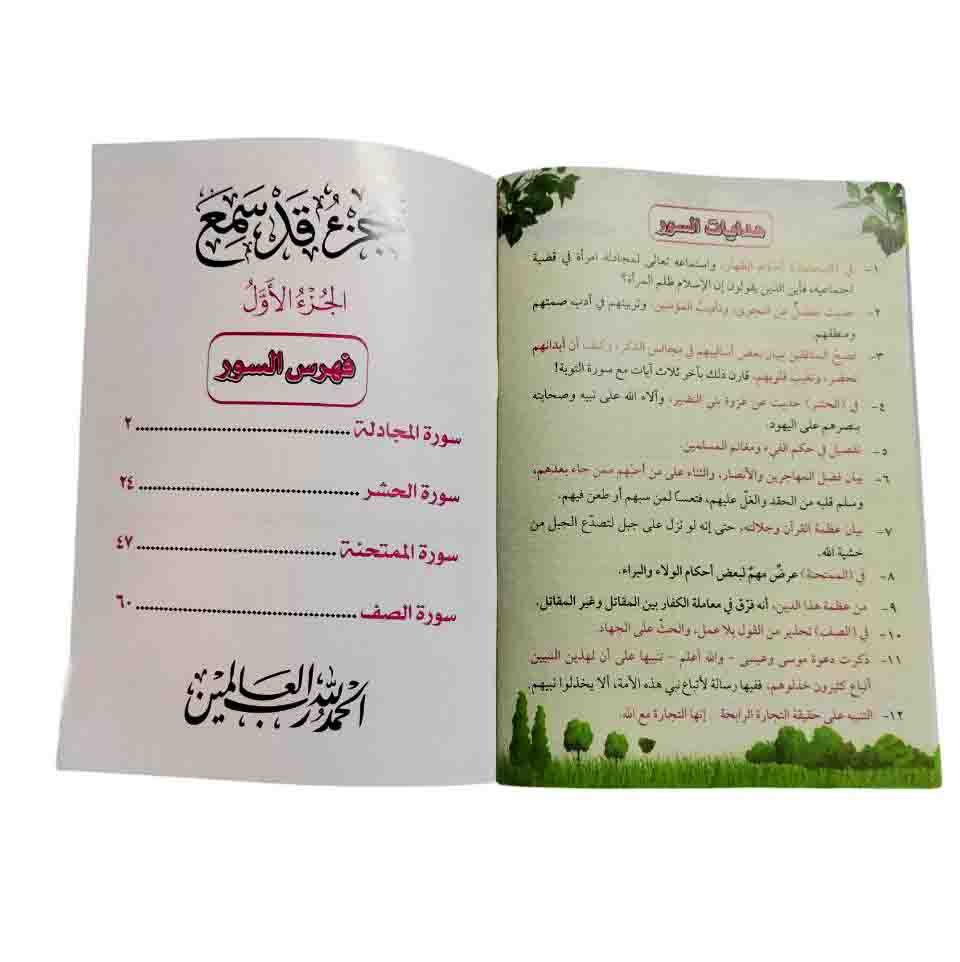 هدايات السور
١- في (المجادلة) أحكام الظهار، واستماعه تعالى لمجادلة امرأة في قضية
اجتماعية، فأين الذين يقولون إن الإسلام ظلم المرأة؟
٢- حديث مفصل عن النجوى، وتأديبُ المؤمنين، وتربيتهم في أدب صمتهم
ومنطقهم.
٣- فضحُ المنافقين ببيان بعض أساليبهم في مجالس الذكر، وكيف أن أبدانهم
تحضر، وتغيب قلوبهم، قارن ذلك بآخر ثلاث آيات مع سورة التوبة!
٤- في (الحشر) حديث عن غزوة بني النضير، وآلاء الله على نبيه وصحابته
بنصرهم على اليهود.
٥- تفصيل في حكم الفيء ومغانم المسلمين.
٦- بيان فضل المهاجرين والأنصار، والثناء على من أحبّهم ممن جاء بعدهم،
وسلم قلبه من الحقد والغلّ عليهم، فتعساً لمن سبهم أو طعن فيهم.
٧- بيان عظمة القرآن وجلالته، حتى إنه لو نزل على جبل لتصدّع الجبل من
خشية الله.
٨- في (الممتحنة) عرضٌ مهمٌ لبعض أحكام الولاء والبراء.
٩- من عظمة هذا الدين، أنه فرّق في معاملة الكفار بين المقاتل وغير المقاتل.
١٠- في (الصف) تحذير من القول بلا عمل، والحثّ على الجهاد.
١١- ذكرت دعوة موسى وعيسى - والله أعلم - تنبيها على أن لهذين النبيين
أتباع كثيرون خذلوهم، ففيها رسالة لأتباع نبي هذه الأمة، ألا يخذلوا نبيهم.
١٢- التنبيه على حقيقة التجارة الرابحة.. إنها التجارة مع الله.
جزء قد سمع
الجُزْءُ الأَوَّلُ
فهرس السور
سورة المجادلة ........................ ٢
سورة الحشر ........................ ٢٤
سورة الممتحنة ........................ ٤٧
سورة الصف ........................ ٦٠
الحمد لله رب العالمين